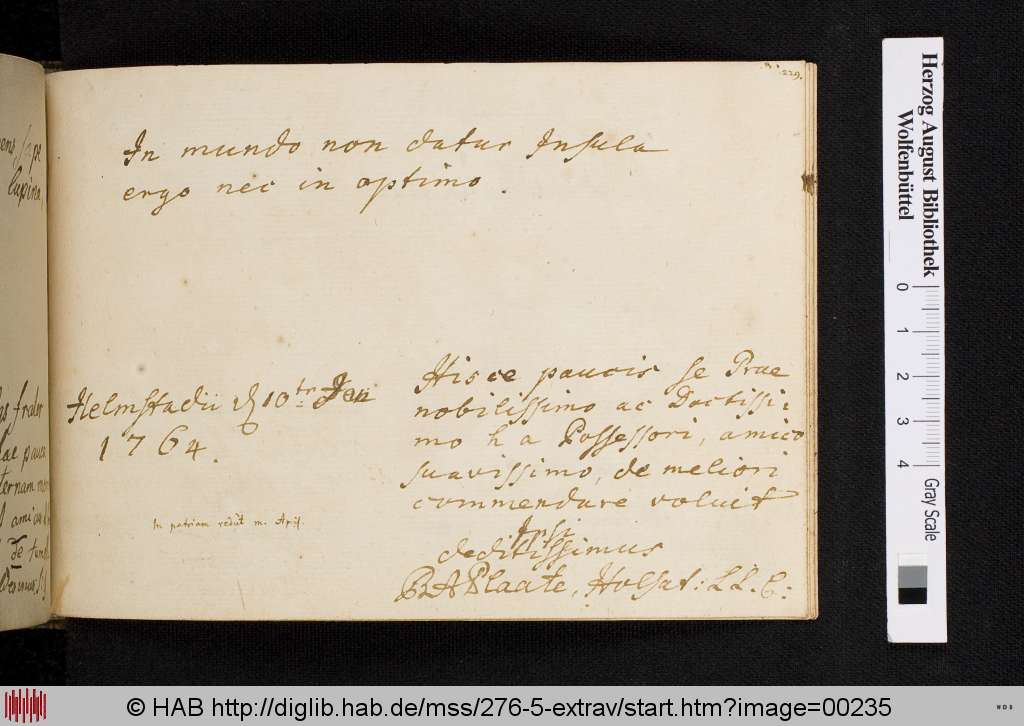 229.
In mundo non datur Insula
ergo nec in optimo.
Helmstadii d 10ter Jan
1764.
In patriam rediit m. Apr.
Hisce paucis se Prae
nobilissimo ac Doctissi:
mo h a Possessori, amico
suavissimo, de meliori
commendare voluit
deditissimus
BAPlaate, Holsat: LL. C:
lupina
frater
pauca
Herzog August Bibliothek
Wolfenbüttel
0 1 2 3 4
Gray Scale
© HAB http://diglib.hab.de/mss/276-5-extrav/start.htm?image=00235
WDB